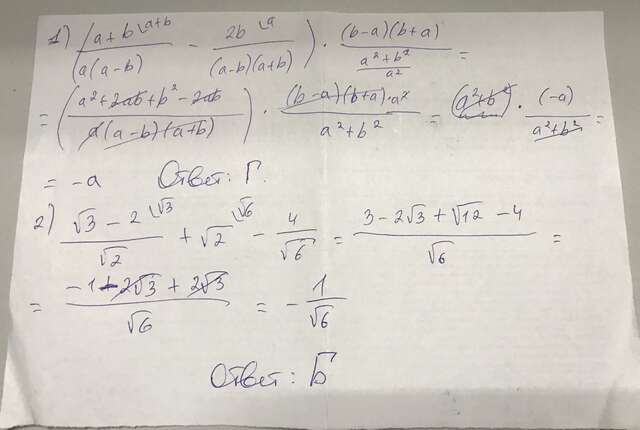 1) ((a+b \a+b)/(a(a-b)) - (2b \a)/((a-b)(a+b))) · ((b-a)(b+a))/((a²+b²)/a²) =
= ((a²+2ab+b²-2ab)/(a(a-b)(a+b))) · ((b-a)(b+a)·a²)/(a²+b²) = (a²+b²) · (-a)/(a²+b²) =
= -a Ответ: Г.
2) (√3-2 \√3)/√2 + √2 \√6 - 4/√6 = (3-2√3+√12-4)/√6 =
= (-1-2√3+2√3)/√6 = -1/√6
Ответ: Б